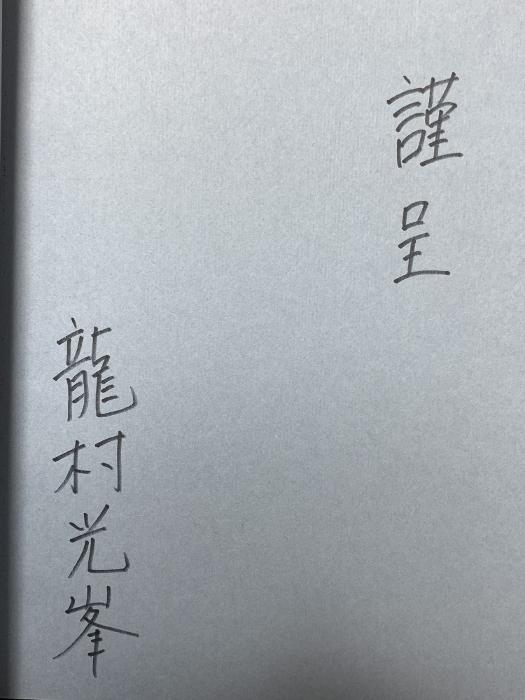 謹呈
龍村光峯